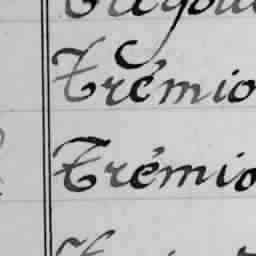 Trémio
Trémio